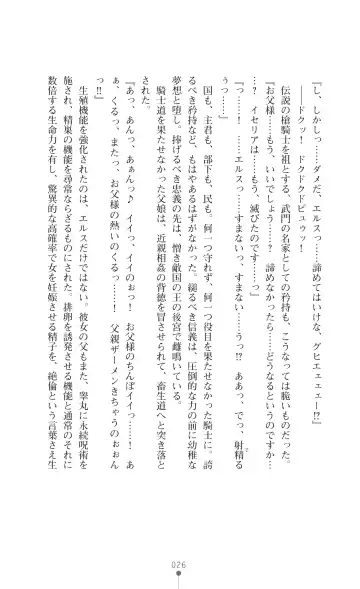 『し、しかしっ……ダメだ、エルスっ……諦めてはいけな、グヒエェェー!?
──クッ！　ドクドクドピュゥッ！
伝説の槍騎士を祖とする、武門の名家としての矜持も、こうなっては脆いものだった。
『お父様……もう、いいでしょう……？　諦めなかったら、どうなるというのですか…
…？　イセリアは……もう、滅びたのです……っ』
『っ……！　……エルスっ……すまないっ、すまない……うっ!?　ああっ、でっ、射精る
うっ……』
国も、主君も、部下も、民も。何一つ守れず、何一つ役目を果たせなかった騎士に。誇
るべき矜持など、もはやあるはずがなかった。縋るべき信義は、圧倒的な力の前に幼稚な
夢想と堕し。捧げるべき忠義の先は、憎き敵国の王の後宮で雌鳴いている。
騎士道を果たせなかった父娘は、近親相姦の背徳を冒させられて、畜生道へと突き落と
された。
『あっ、あんっ、あぁんっ♪　イイっ、イイのぉっ！　お父様のちんぽイイっ……！　あ
ぁ、くるっ、またっ、お父様の熱いのくるっ……！　父親ザーメンきちゃうのぉぉん
っ!!』
生殖機能を強化されたのは、エルスだけではない。彼女の父もまた、睾丸に永続呪術を
施され、精巣の機能を尋常ならざるものにされた。排卵を誘発させる機能と通常のそれに
数倍する生命力を有し、驚異的な高確率で女を妊娠させる精子を、絶倫という言葉さえ生
026